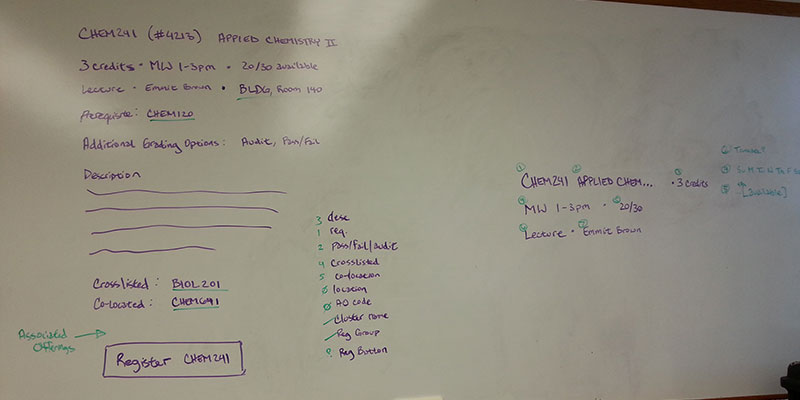 CHEM241 (#4213) APPLIED CHEMISTRY II
3 credits • MW 1-3pm • 20/30 available
Lecture • Emmit Brown • BLDG, Room 140
Prerequisite: CHEM120
Additional Grading Options: Audit, Pass/Fail
Description
Crosslisted: BIOL201
Co-located: CHEM641
Associated
Offerings
Register CHEM241
3 desc
1 req.
2 Pass/Fail/audit
4 crosslisted
5 co-location
Ø location
Ø AO code
Cluster name
Reg Group
? Reg Button
CHEM241 APPLIED CHEM... • 3 credits
MW 1-3pm • 20/30
Lecture • Emmit Brown
[available]